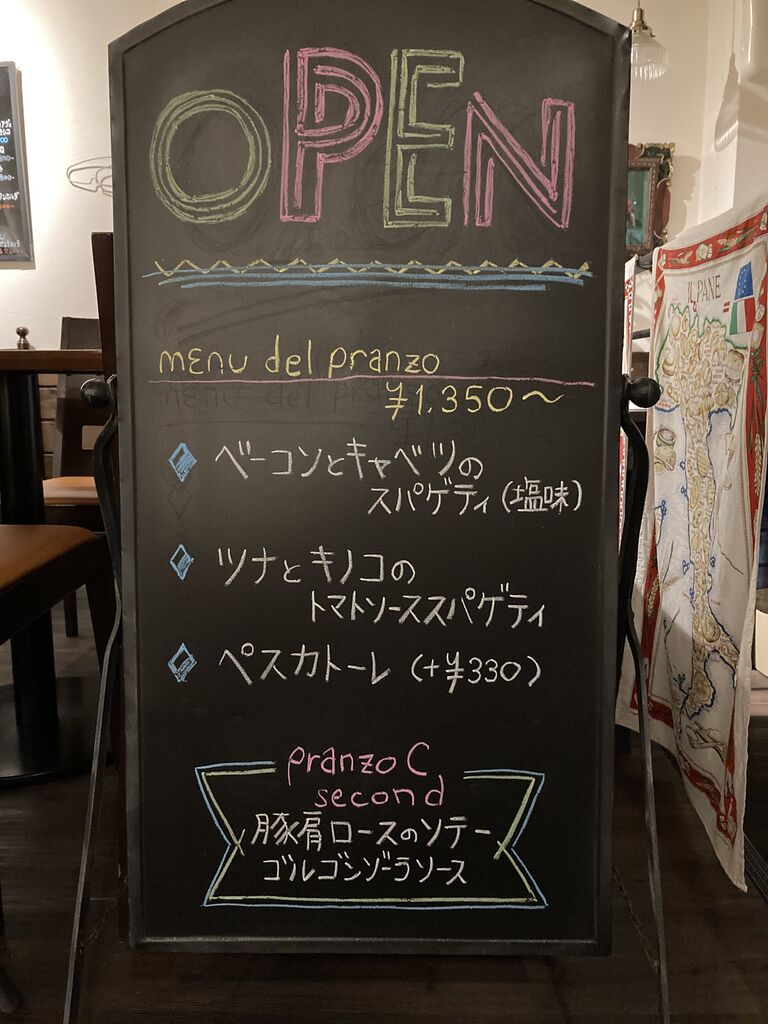 OPEN
menu del pranzo
¥1,350～
ベーコンとキャベツの
スパゲティ（塩味）
ツナとキノコの
トマトソーススパゲティ
ペスカトーレ（+¥330）
pranzo C
second
豚肩ロースのソテー
ゴルゴンゾーラソース
IL PANE